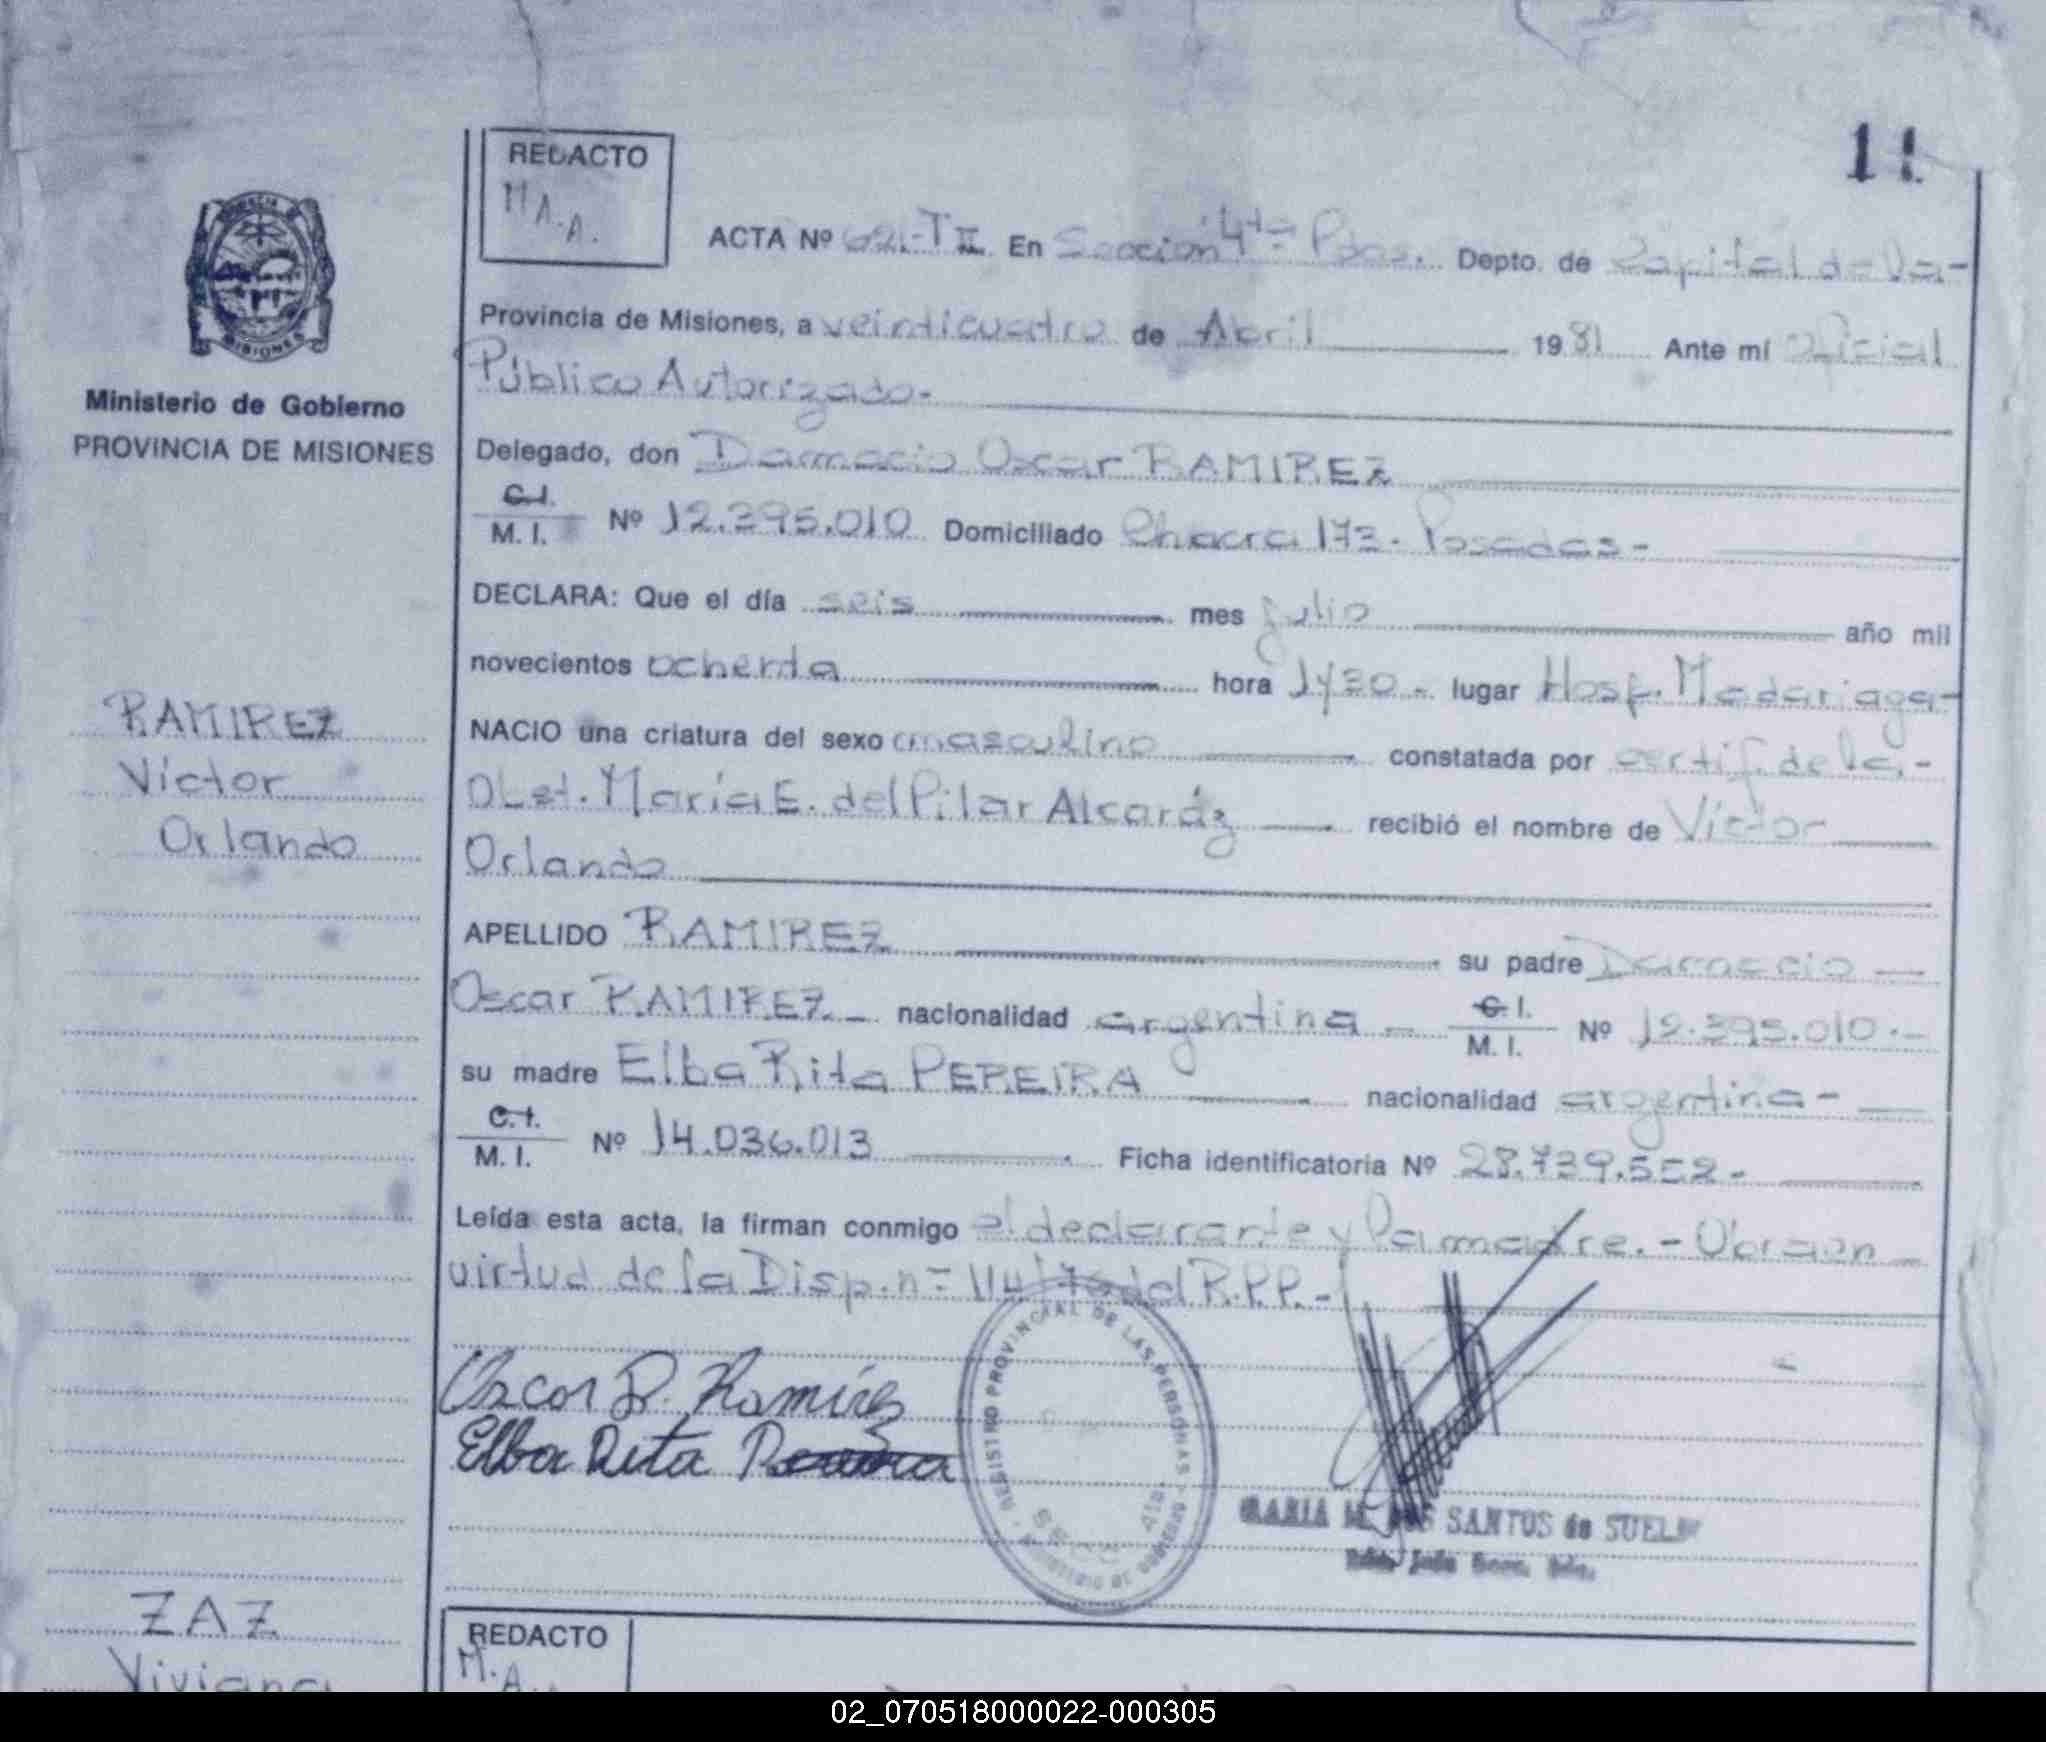 11
REDACTO
M A. A.
ACTA Nº 621-T II En Sección 4ta Pdas. Depto. de Capital de la-
Provincia de Misiones, a veinticuatro de Abril 1981 Ante mí Oficial
Público Autorizado-
Delegado, don Damacio Oscar RAMIREZ
C.I.
M. I. Nº 12.395.010 Domiciliado Chacra 173. Posadas-
DECLARA: Que el día seis mes julio año mil
novecientos ochenta hora 1430 - lugar Hosp. Madariaga-
NACIO una criatura del sexo masculino constatada por certif. de la-
Obst. María E. del Pilar Alcaráz recibió el nombre de Víctor
Orlando
APELLIDO RAMIREZ su padre Damacio
Oscar RAMIREZ nacionalidad argentina C. I.
M. I. Nº 12.395.010.-
su madre Elba Rita PEREIRA nacionalidad argentina-
C.I.
M. I. Nº 14.036.013 Ficha identificatoria Nº 28.739.552-
Leída esta acta, la firman conmigo el declarante y la madre.-
virtud de la Disp. nº del R.P.P.-
Oscar D. Ramírez
Elba Rita
REGISTRO PROVINCIAL DE LAS PERSONAS
MARIA M. DOS SANTOS de
Ministerio de Gobierno
PROVINCIA DE MISIONES
RAMIREZ
Víctor
Orlando
ZAZ
Viviana
REDACTO
M. A.
02_070518000022-000305